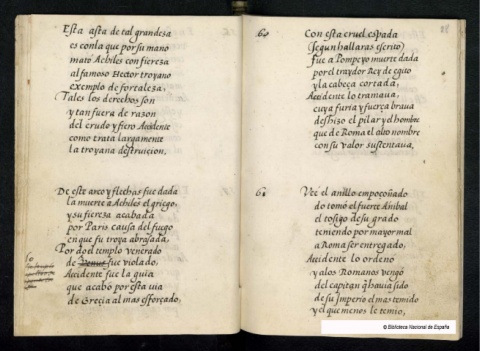 Esta asta de tal grandesa
es con la que por su mano
mato Achiles con fiereza
al famoso Hector troyano
exemplo de fortaleza,
Tales los derechos son
y tan fuera de razon
del crudo y fiero Accidente
como trata largamente
la troyana destruicion,
De este arco y flechas fue dada
la muerte a Achiles el griego,
y su fiereza acabada
por Paris causa del fuego
en que fu troya abrasada,
Por do el templo venerado
de fue violado,
Accidente fue la guia
que acabo por esta via
de Greçia al mas esforçado,
60
Con esta cruel espada
(segun hallaras escrito)
fue a Pompeyo muerte dada
por el traydor Rey de egito
y la cabeça cortada,
Accidente lo tramaua,
cuya furia y fuerça braua
deshizo el pilar y el hombre
que de Roma el alto nombre
con su valor sustentaua,
61
Veis el anillo empoçoñado
do tomó el fuerte Anibal
el tosigo de su grado
teniendo por mayor mal
a Roma ser entregado,
Accidente lo ordeno
y a los Romanos vengó
del capitan q̃ hauia sido
de su Imperio el mas temido
y el que menos le temio,
© Biblioteca Nacional de España